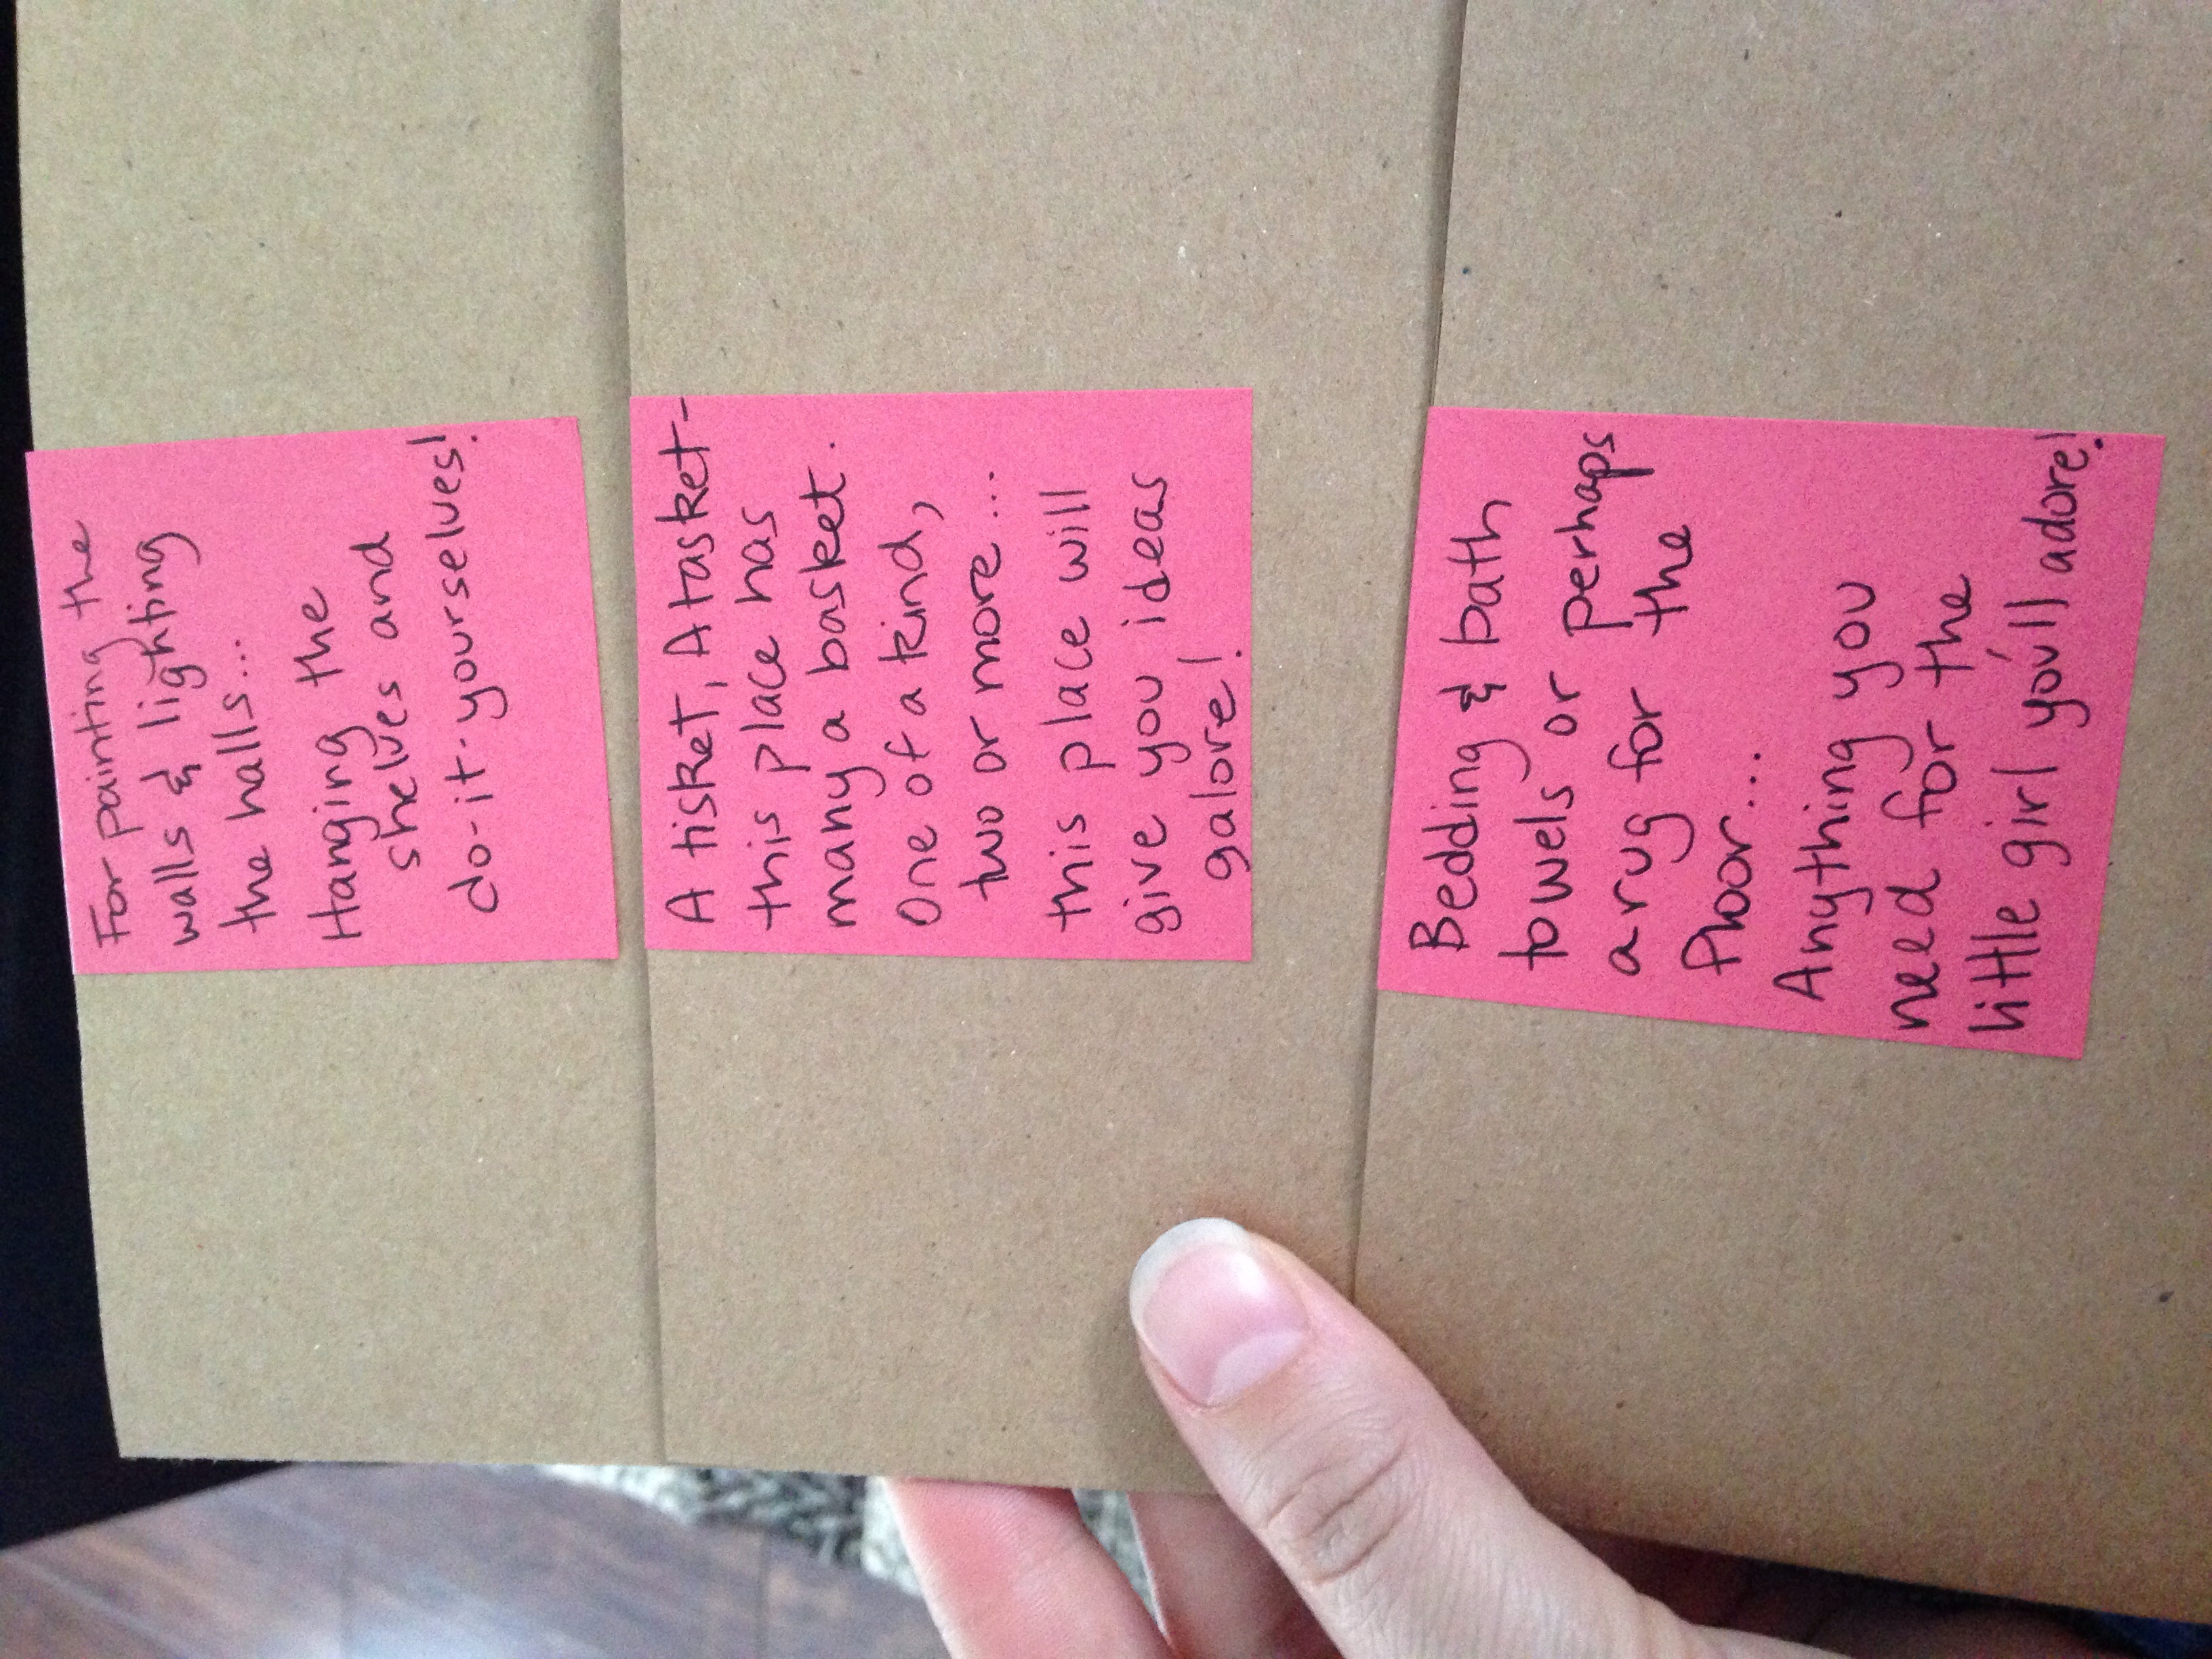 For painting the
walls & lighting
the halls...
Hanging the
shelves and
do-it-yourselves!
A tisket, A tasket-
this place has
many a basket.
One of a kind,
two or more...
this place will
give you ideas
galore!
Bedding & bath
towels or perhaps
a rug for the
floor...
Anything you
need for the
little girl you'll adore!